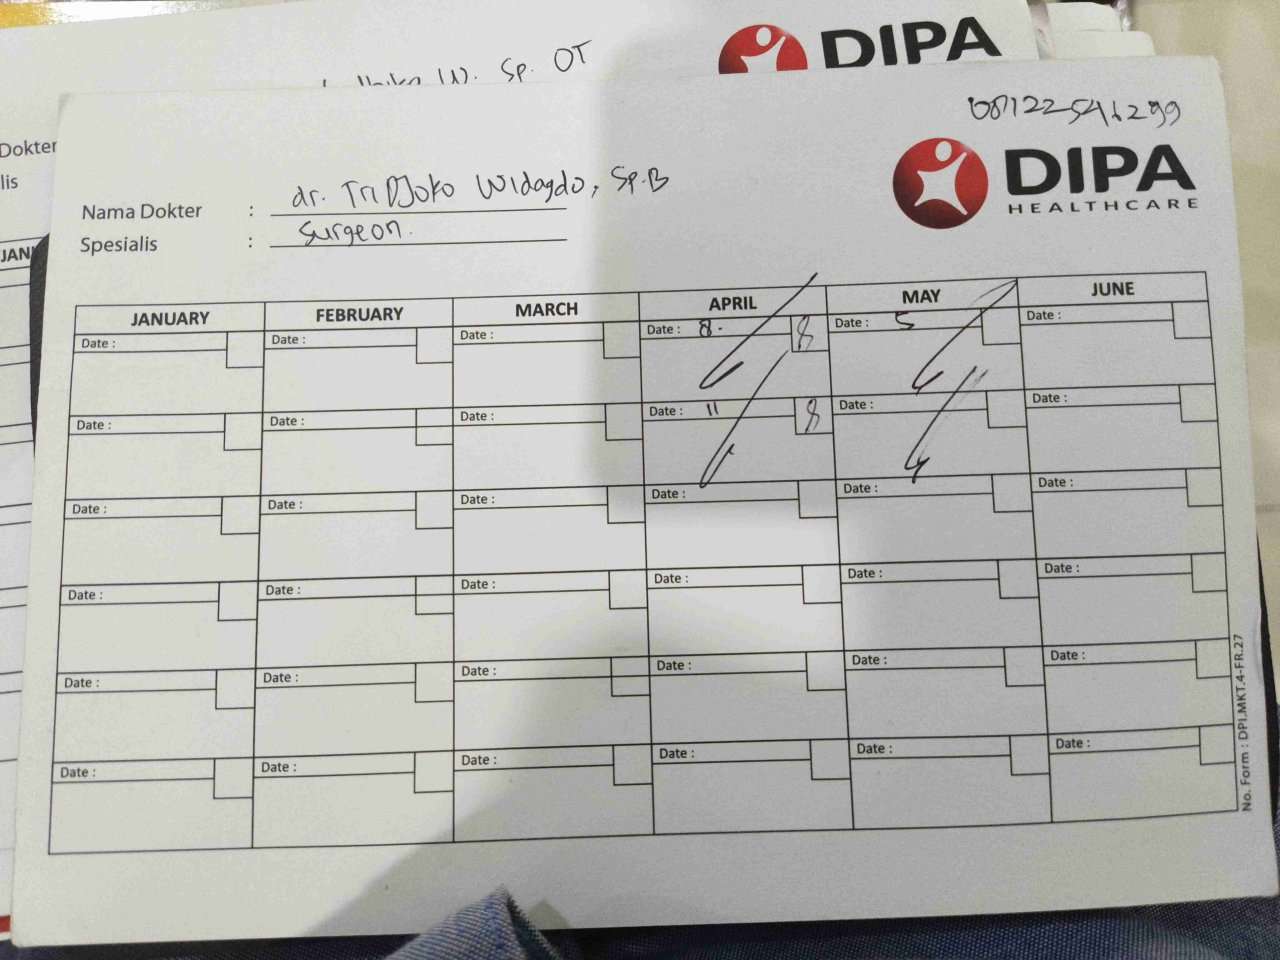 W. Sp. OT
DIPA
Dokter
lis
JAN
081225546299
DIPA
HEALTHCARE
Nama Dokter : dr. Tri Djoko Widagdo, Sp.B
Spesialis : Surgeon.
JANUARY FEBRUARY MARCH APRIL MAY JUNE
Date : Date : Date : Date : 8. 8 Date : 5 Date :
Date : Date : Date : Date : 11 8 Date : Date :
Date : Date : Date : Date : Date : Date :
Date : Date : Date : Date : Date : Date :
Date : Date : Date : Date : Date : Date :
Date : Date : Date : Date : Date : Date :
No. Form : DPI.MKT.4-FR.27